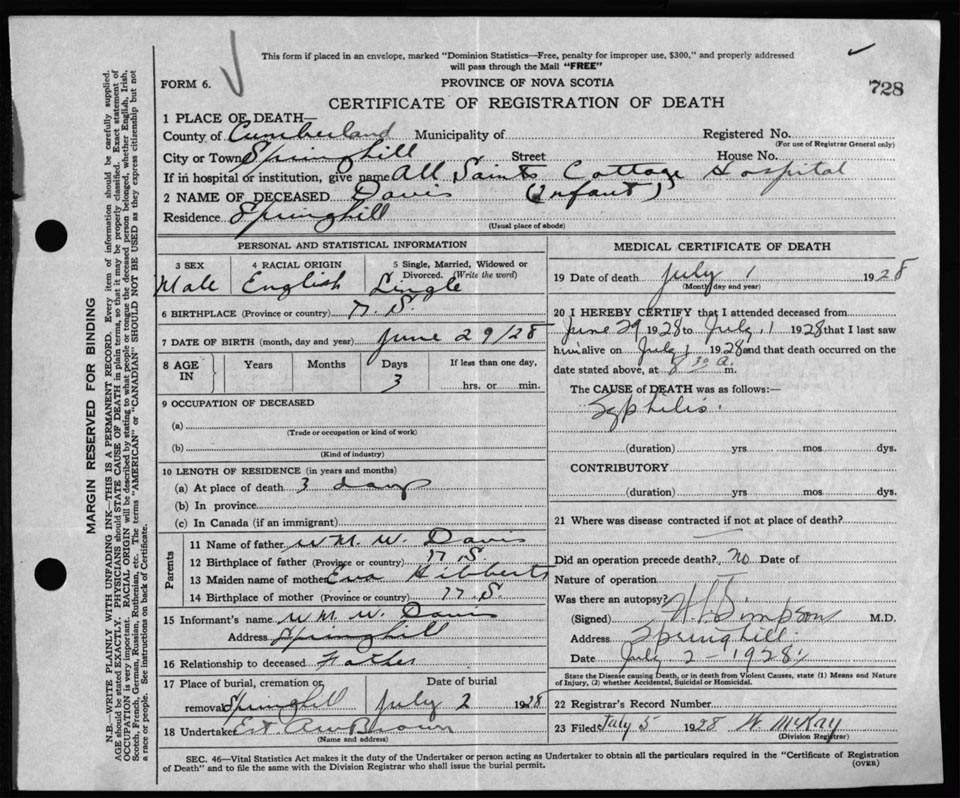 This form if placed in an envelope, marked "Dominion Statistics—Free, penalty for improper use, $300," and properly addressed
will pass through the Mail "FREE"
FORM 6.
PROVINCE OF NOVA SCOTIA
728
CERTIFICATE OF REGISTRATION OF DEATH
1 PLACE OF DEATH—
County of Cumberland Municipality of Registered No.
(For use of Registrar General only)
City or Town Springhill Street House No.
If in hospital or institution, give name All Saints Cottage Hospital
2 NAME OF DECEASED Davis (Infant)
Residence Springhill
(Usual place of abode)
PERSONAL AND STATISTICAL INFORMATION
3 SEX
Male
4 RACIAL ORIGIN
English
5 Single, Married, Widowed or
Divorced. (Write the word)
Single
6 BIRTHPLACE (Province or country) N.S.
7 DATE OF BIRTH (month, day and year) June 29/28
8 AGE IN
Years Months Days
3
If less than one day,
hrs. or min.
9 OCCUPATION OF DECEASED
(a)
(Trade or occupation or kind of work)
(b)
(Kind of industry)
10 LENGTH OF RESIDENCE (in years and months)
(a) At place of death 3 days
(b) In province
(c) In Canada (if an immigrant)
Parents
11 Name of father Wm. W. Davis
12 Birthplace of father (Province or country) N.S.
13 Maiden name of mother Eva Hibberts
14 Birthplace of mother (Province or country) N.S.
15 Informant's name Wm. W. Davis
Address Springhill
16 Relationship to deceased Father
17 Place of burial, cremation or
removal Springhill
Date of burial
July 2 1928
18 Undertaker Est. A W Brown
(Name and address)
MEDICAL CERTIFICATE OF DEATH
19 Date of death July 1 1928
(Month, day and year)
20 I HEREBY CERTIFY that I attended deceased from
June 29 1928 to July 1 1928 that I last saw
him alive on July 1 1928 and that death occurred on
date stated above, at 8 30 a m.
The CAUSE of DEATH was as follows:—
Syphilis.
(duration) yrs mos dys.
CONTRIBUTORY
(duration) yrs mos dys.
21 Where was disease contracted if not at place of death?
Did an operation precede death? no Date of
Nature of operation
Was there an autopsy?
(Signed) Simpson M.D.
Address Springhill.
Date July 2 - 1928
State the Disease causing Death, or in death from Violent Causes, state (1) Means and Nature
of Injury, (2) whether Accidental, Suicidal or Homicidal.
22 Registrar's Record Number
23 Filed July 5 1928 W. McKay
(Division Registrar)
SEC. 46—Vital Statistics Act makes it the duty of the Undertaker or person acting as Undertaker to obtain all the particulars required in the "Certificate of Registration
of Death" and to file the same with the Division Registrar who shall issue the burial permit.
(OVER)
MARGIN RESERVED FOR BINDING
N.B.—WRITE PLAINLY WITH UNFADING INK—THIS IS A PERMANENT RECORD. Every item of information should be carefully supplied.
AGE should be stated EXACTLY. PHYSICIANS should STATE CAUSE OF DEATH in plain terms, so that it may be properly classified. Exact statement of
OCCUPATION is very important. RACIAL ORIGIN will be described by stating to what people or tongue the deceased person belonged, whether English, Irish,
Scotch, French, German, Russian, Ruthenian, etc. The terms "AMERICAN" or "CANADIAN" SHOULD NOT BE USED as they express citizenship but not
a race or people. See instructions on back of Certificate.